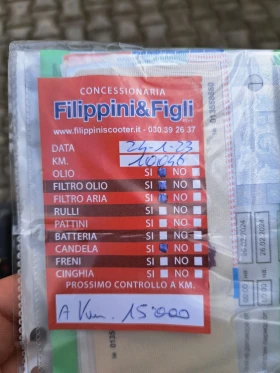 CONCESSIONARIA
Filippini&Figli
www.filippiniscooter.it - 030.39 26 37
DATA 24-1-23
KM. 10046
OLIO SI NO
FILTRO OLIO SI NO
FILTRO ARIA SI NO
RULLI SI NO
PATTINI SI NO
BATTERIA SI NO
CANDELA SI NO
FRENI SI NO
CINGHIA SI NO
PROSSIMO CONTROLLO A KM.
A Km. 15'000
26.02.2024
26.02.2024